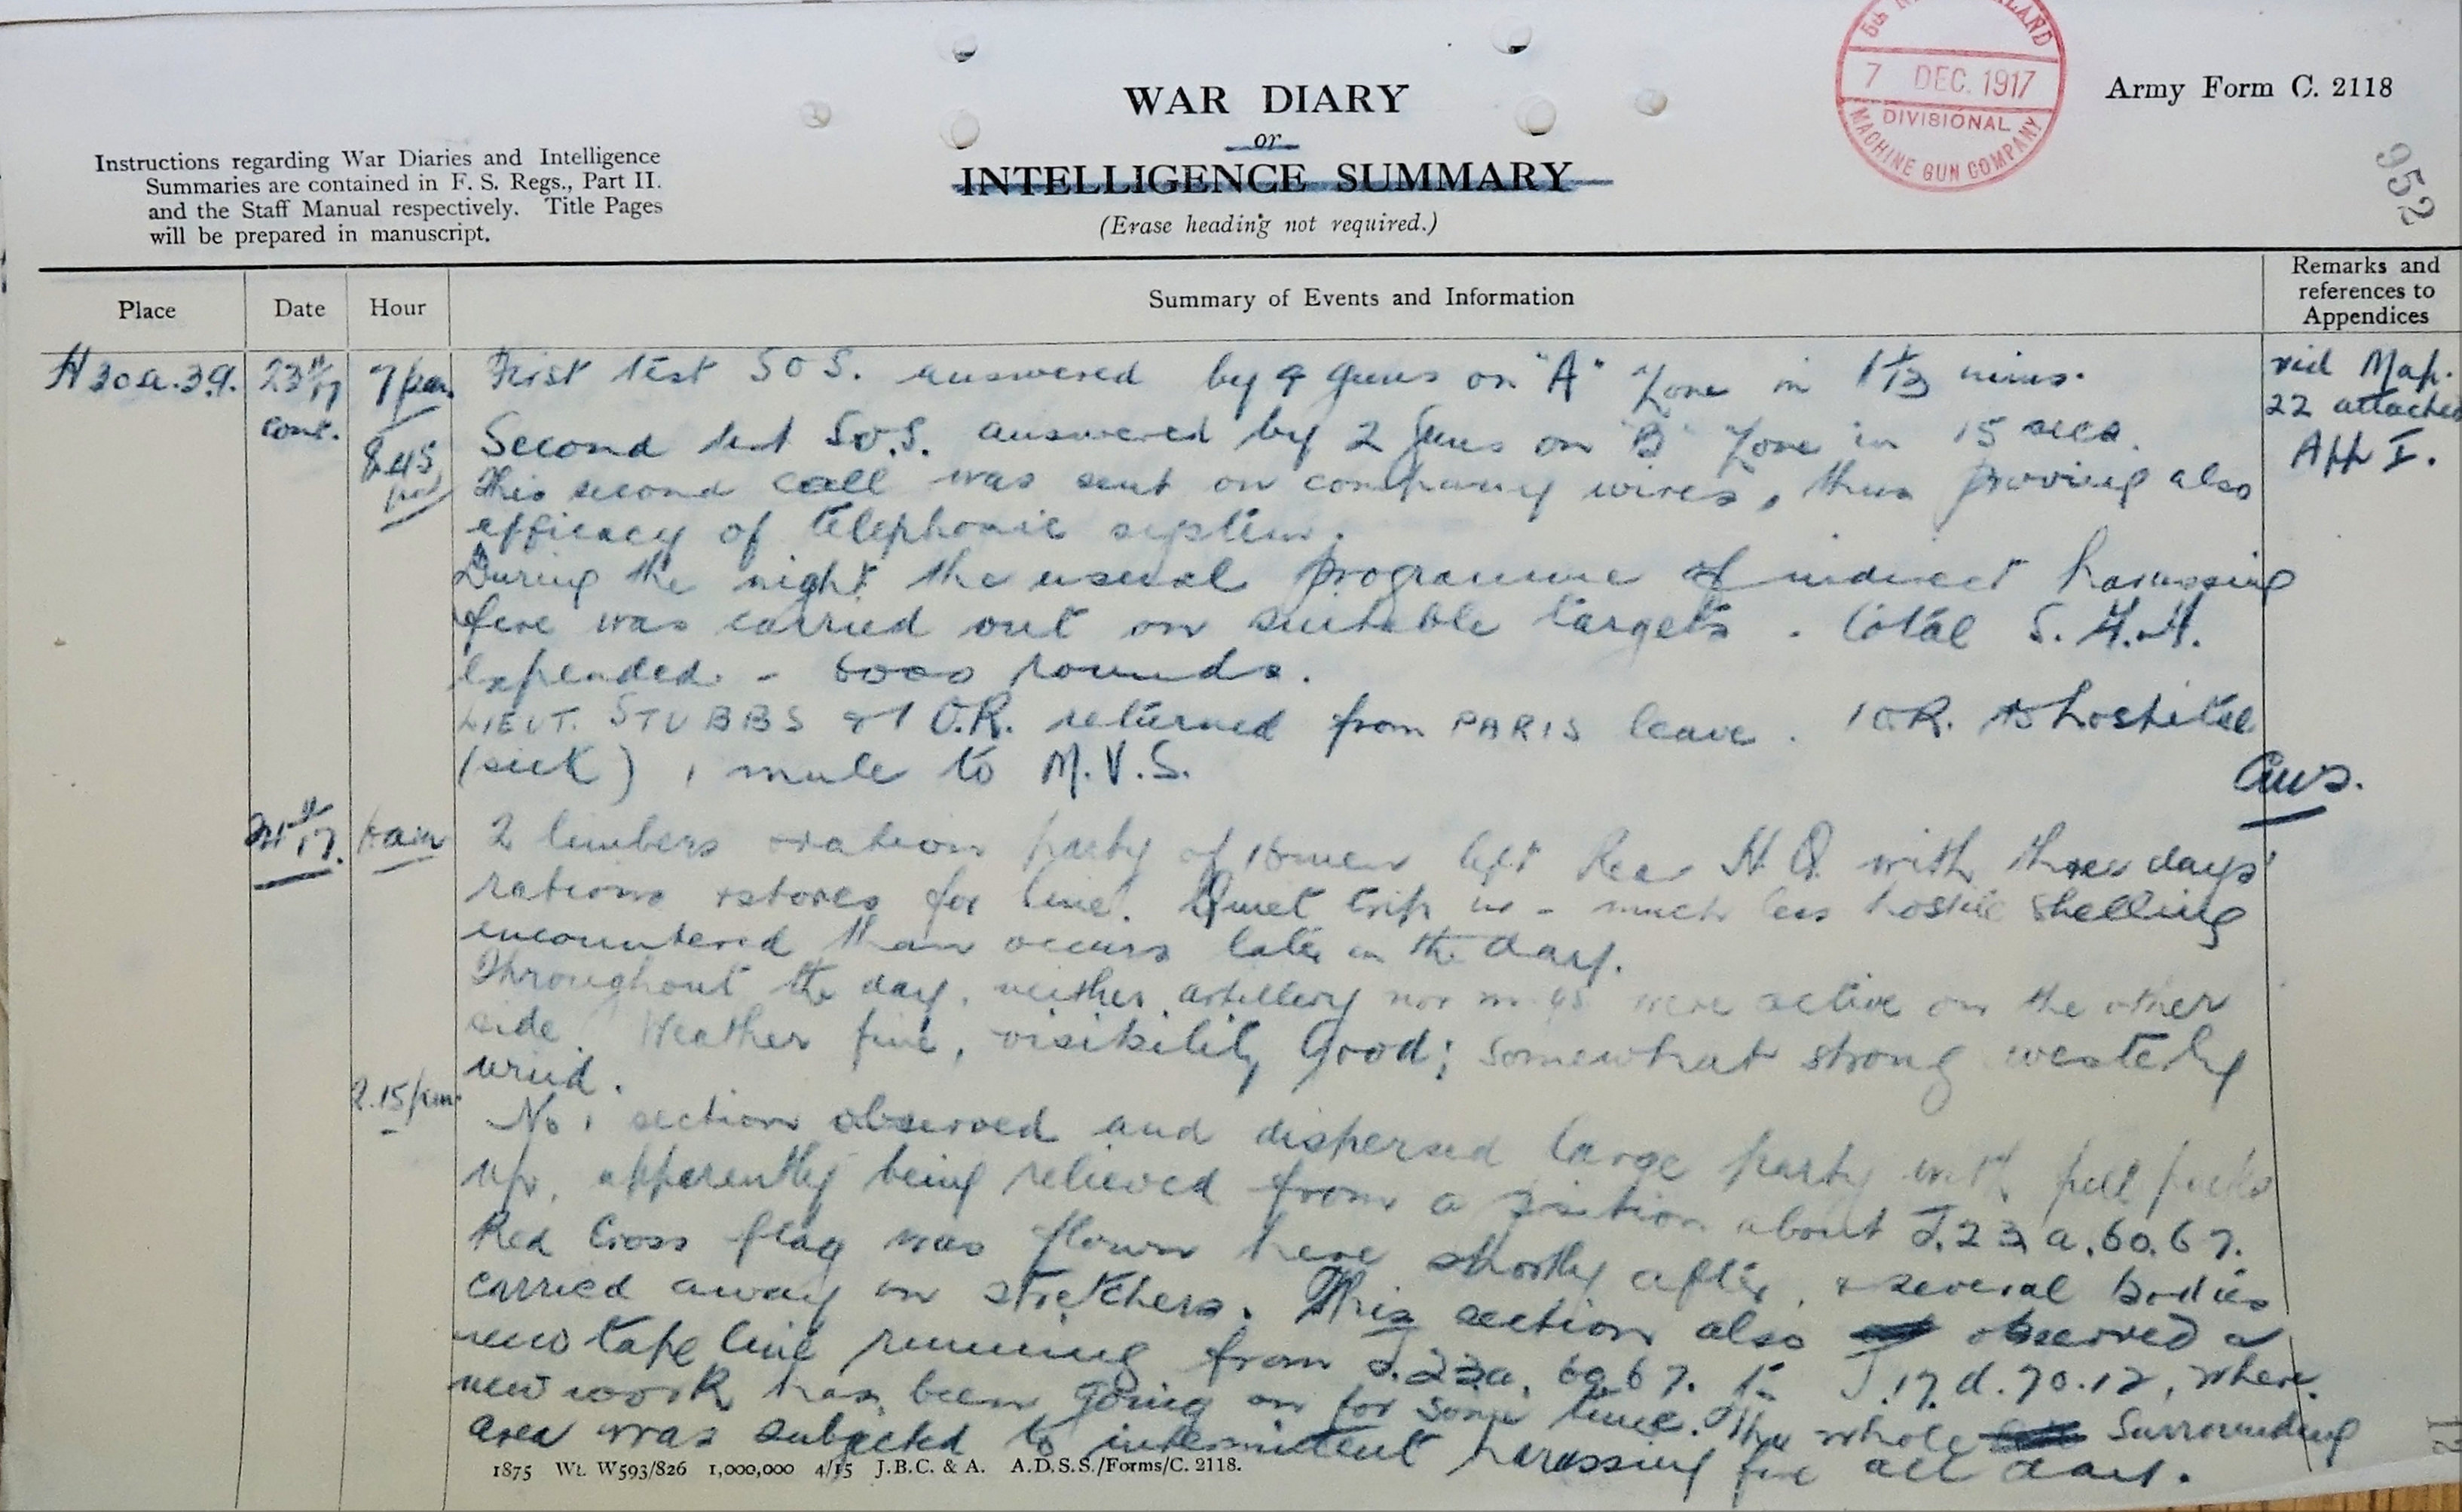 5th N LAND
7 DEC. 1917
DIVISIONAL
MACHINE GUN COMPANY
Army Form C. 2118
952
WAR DIARY
or
INTELLIGENCE SUMMARY
(Erase heading not required.)
Instructions regarding War Diaries and Intelligence
Summaries are contained in F. S. Regs., Part II.
and the Staff Manual respectively. Title Pages
will be prepared in manuscript.
Place Date Hour Summary of Events and Information Remarks and references to Appendices
H30a.3.9. 23rd/17 7pm First test SOS. answered by 9 guns on "A" Zone in 1 1/3 mins. vid Map.
22 attached
cont. 8.45 pm Second test S.O.S. answered by 2 guns on "B" Zone in 15 secs. App I.
This second call was sent on company wires, thus proving also
efficacy of telephonic system.
During the night the usual programme of indirect harassing
fire was carried out on suitable targets. Total S.A.A.
expended - 6000 rounds.
LIEUT. STUBBS & 1 O.R. returned from PARIS leave. 1 O.R. to hospital
(sick) 1 mule to M.V.S.
24th/17. 2 limbers & ration party of 16 men left Rear H.Q. with three days'
rations & stores for line. Quiet trip in - much less hostile shelling
encountered than occurs later in the day.
Throughout the day, neither artillery nor m.gs were active on the other
side. Weather fine, visibility good; somewhat strong westerly
wind.
2.15 pm. No 1 section observed and dispersed large party with full packs
up, apparently being relieved from a position about J.23.a.60.67.
Red Cross flag was flown here shortly after, & several bodies
carried away on stretchers. This section also observed a
new tape line running from J.23a.60.67. to J.17.d.70.12, where
new work has been going on for some time. The whole surrounding
area was subjected to intermittent harassing fire all day.
1875 Wt. W593/826 1,000,000 4/15 J.B.C. & A. A.D.S.S./Forms/C. 2118.